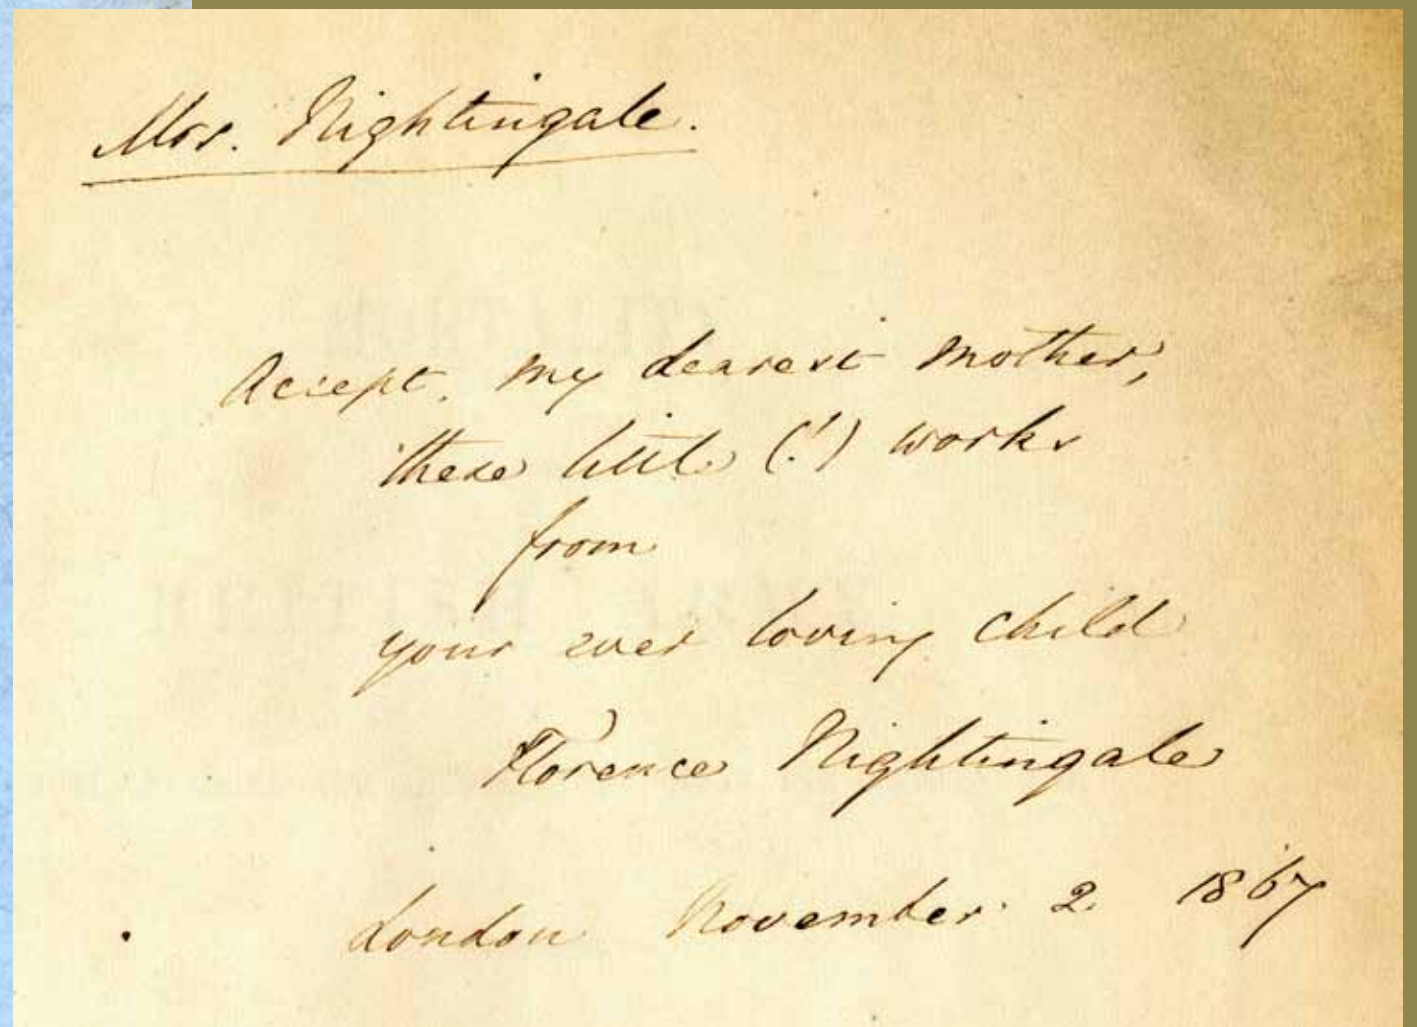 Mrs. Nightingale.
Accept, my dearest mother,
these little (!) works
from
your ever loving child
Florence Nightingale
London November 2. 1867